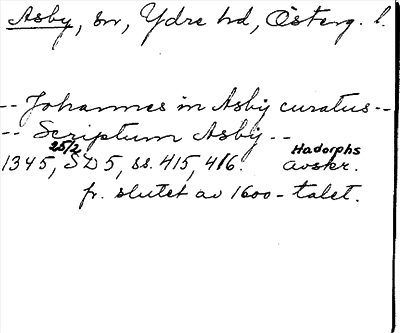 Asby, sn, Ydre hd, Österg. l.
-- Johannes in Asby curatus --
-- Scriptum Asby --
25/2 Hadorphs
1345, SD 5, ss. 415, 416. avskr.
fr. slutet av 1600-talet.